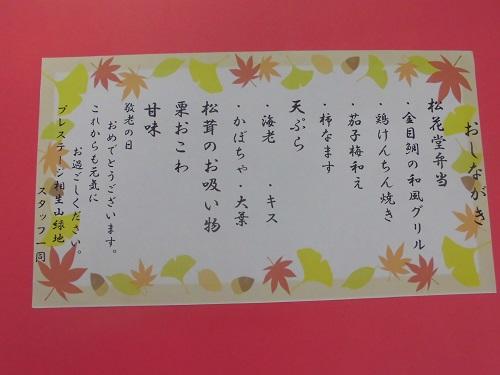 おしながき
松花堂弁当
・金目鯛の和風グリル
・鶏けんちん焼き
・茄子梅和え
・柿なます
天ぷら
・海老 ・キス
・かぼちゃ ・大葉
松茸のお吸い物
栗おこわ
甘味
敬老の日
おめでとうございます。
これからも元気に
お過ごしください。
プレステージ相生山緑地
スタッフ一同